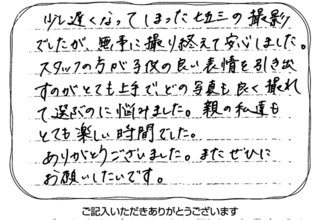 少し遅くなってしまった七五三の撮影
でしたが、無事に撮り終えて安心しました。
スタッフの方が子供の良い表情を引き出
すのがとても上手で、どの写真も良く撮れ
て選ぶのに悩みました。親の私達も
とても楽しい時間でした。
ありがとうございました。またぜひに
お願いしたいです。
ご記入いただきありがとうございます